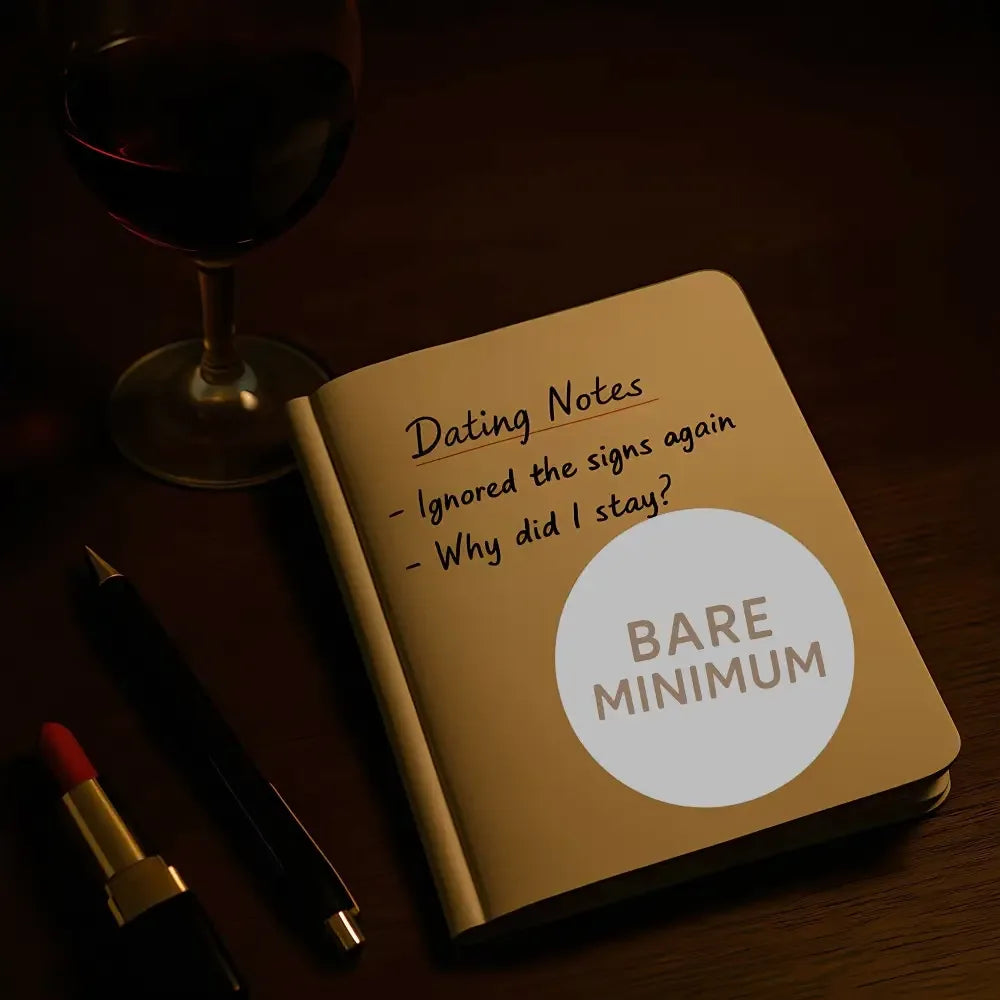 Dating Notes
- Ignored the signs again
- Why did I stay?
BARE
MINIMUM